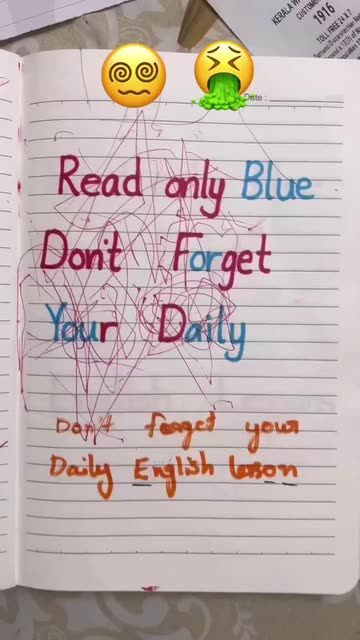 KERALA WA
CUSTOME
1916
TOLL FREE 24 X 7
Date :
Read only Blue
Don't Forget
Your Daily
Don't forget your
Daily English lesson